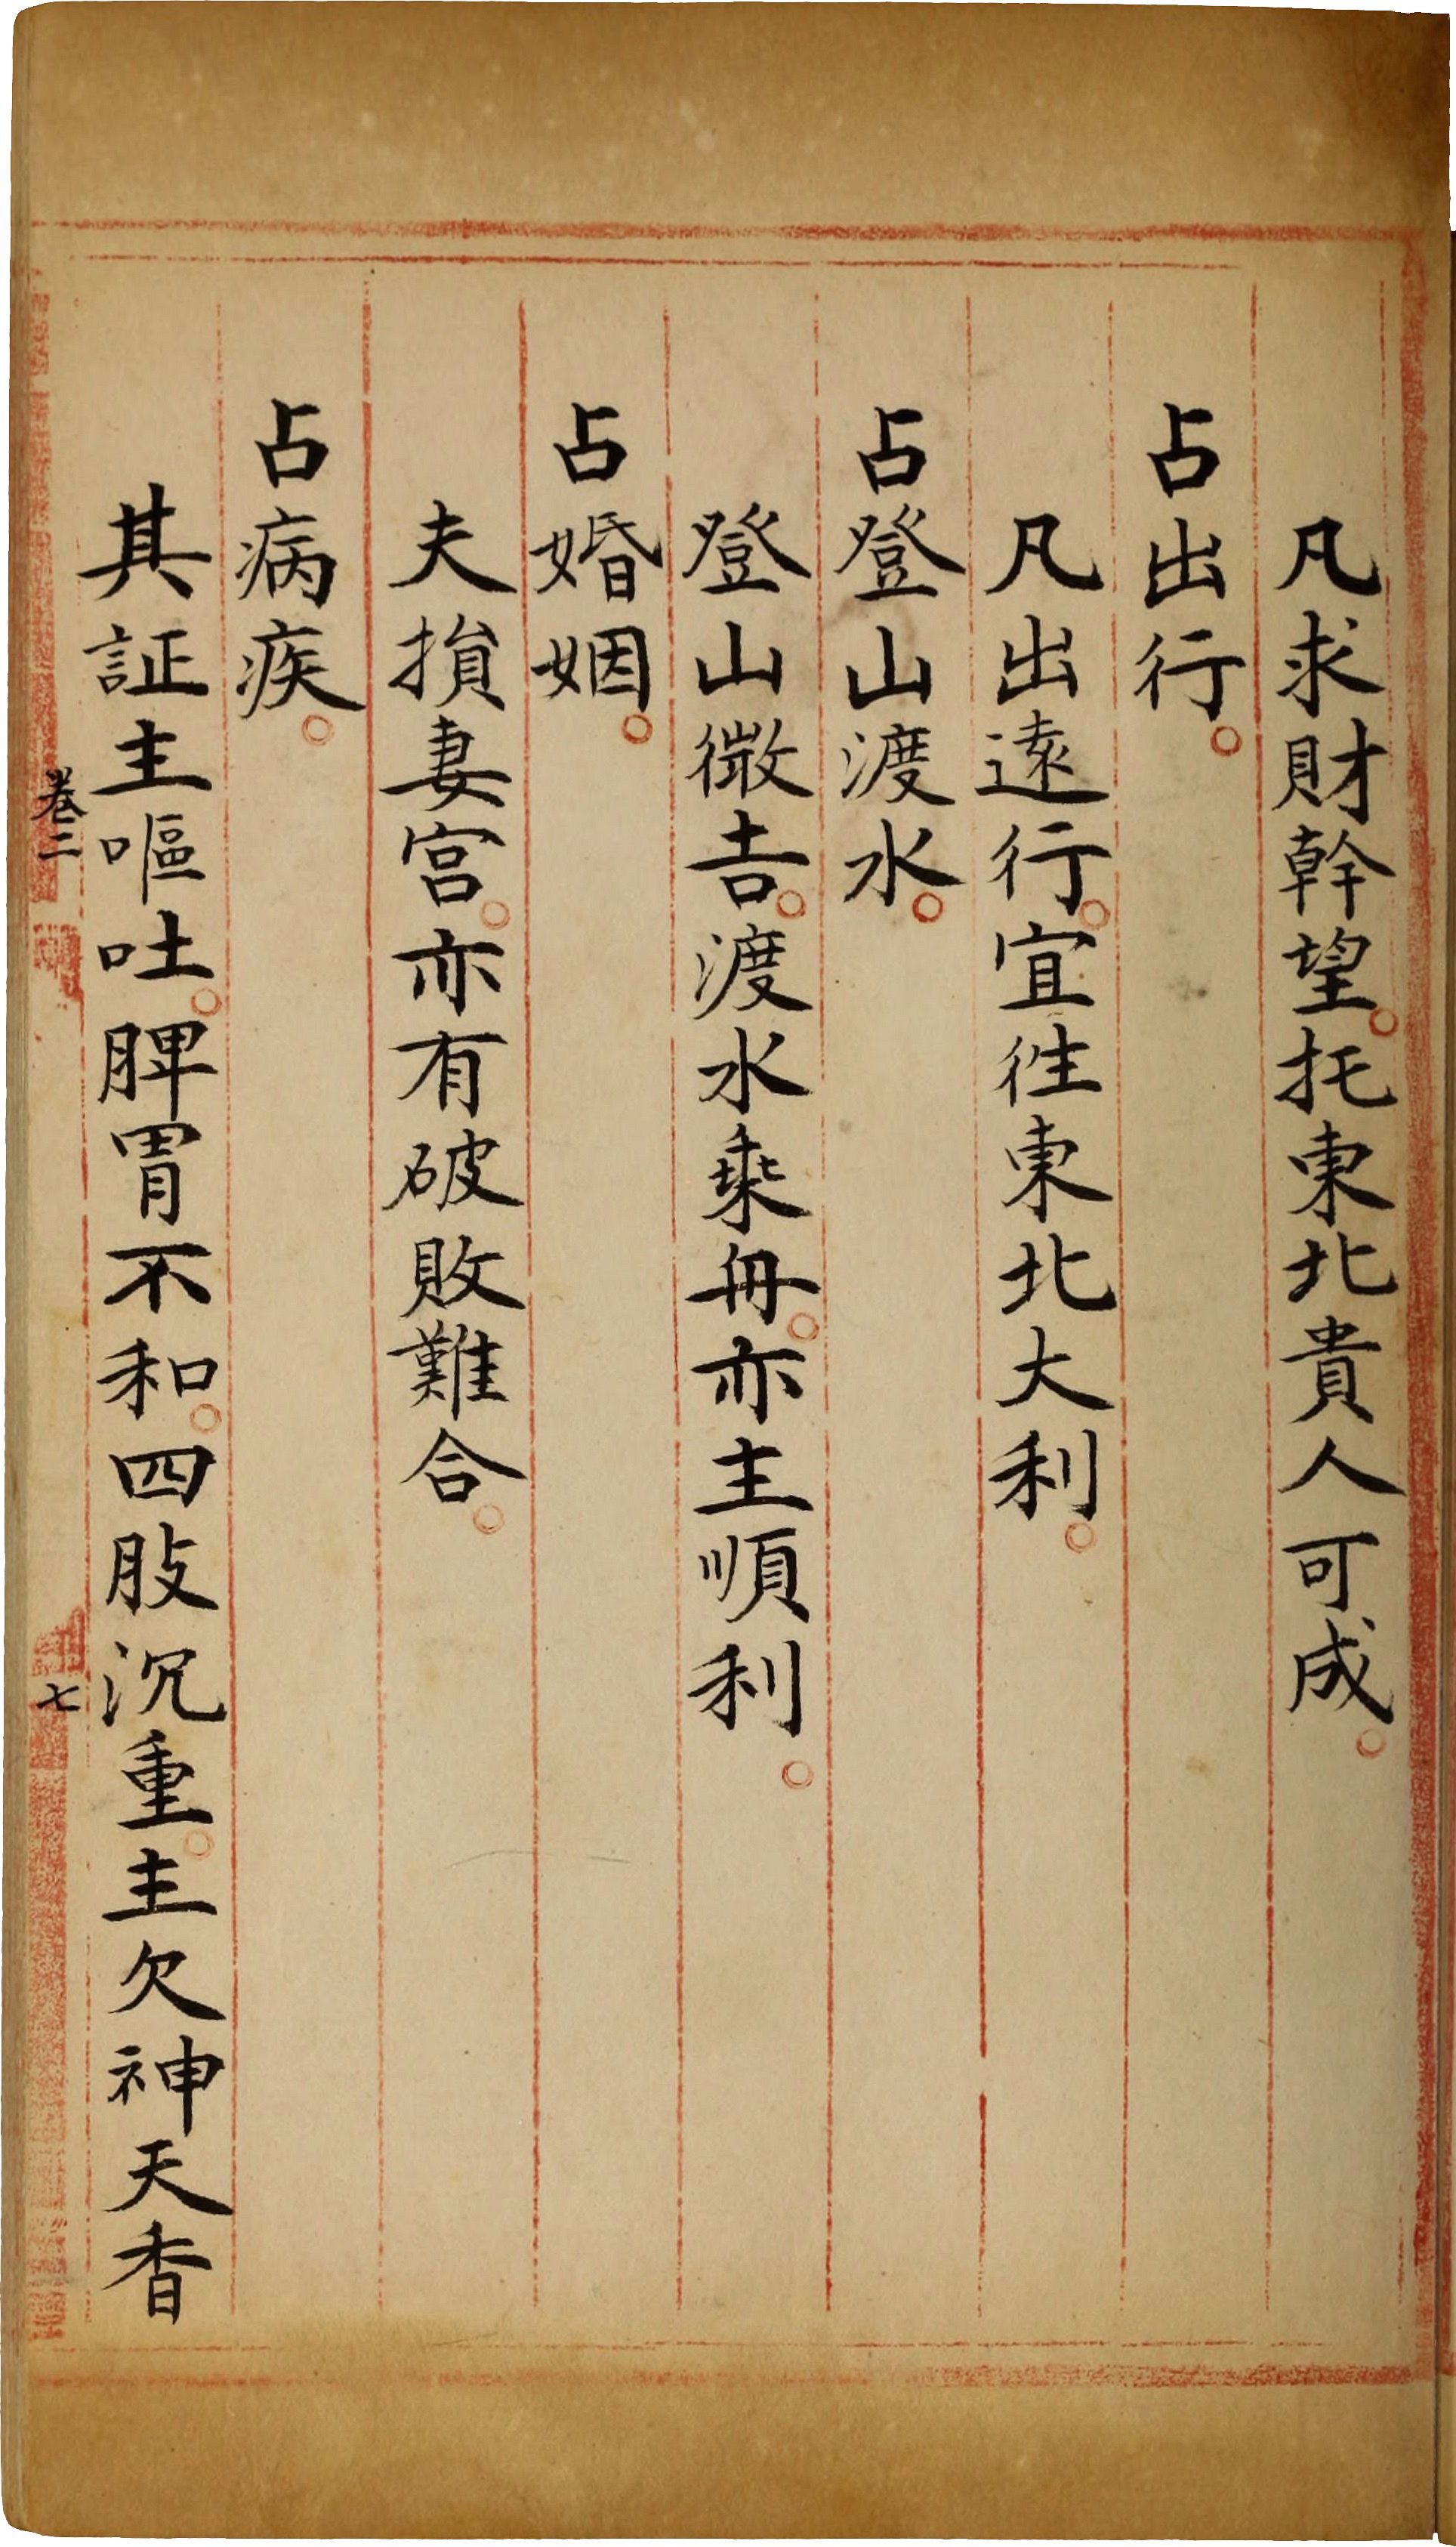 凡求財幹望。托東北貴人可成。
占出行。
凡出遠行。宜徃東北大利。
占登山渡水。
登山微吉。渡水乘舟。亦主順利。
占婚姻。
夫損妻宮。亦有破敗難合。
占病疾。
其証主嘔吐。脾胃不和。四肢沉重。主欠神天香
卷二
七